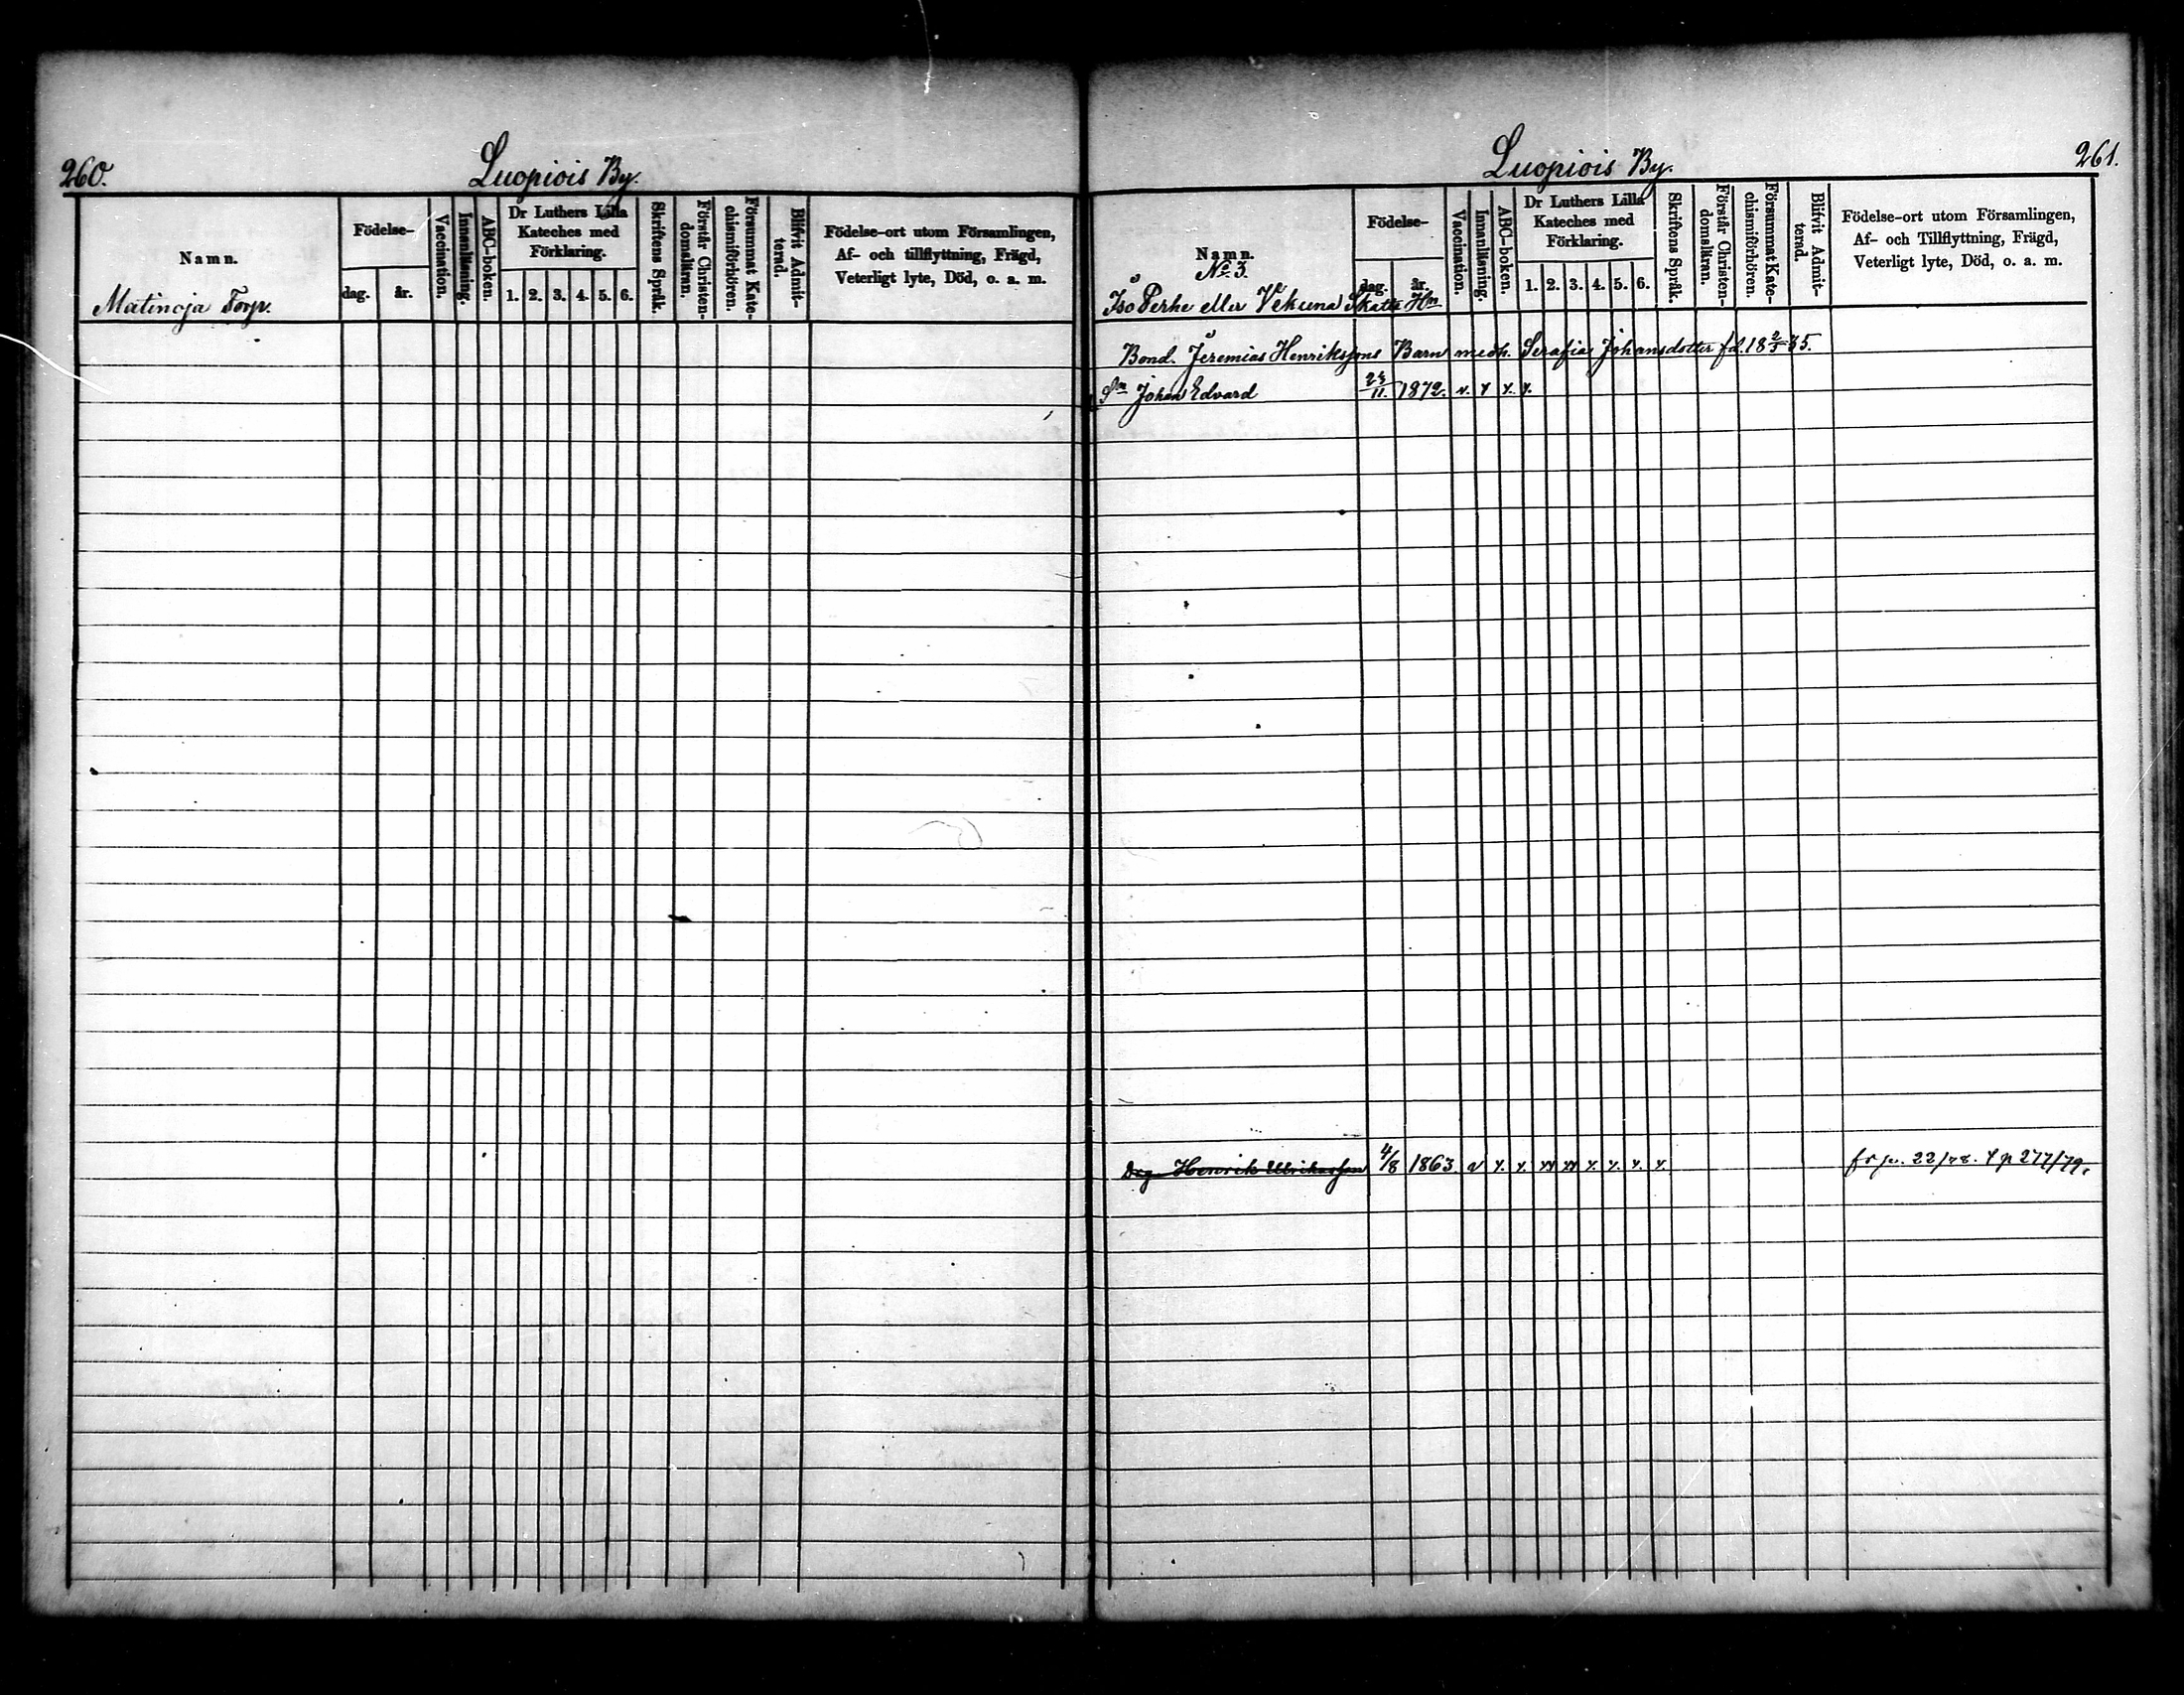 260.
Luopiois By.
Namn.
Födelse-
dag.
år.
Vaccination.
Innanläsning.
ABC-boken.
Dr Luthers Lilla
Kateches med
Förklaring.
1. 2. 3. 4. 5. 6.
Skriftens Språk.
Förstår Christen-
domsläran.
Försummat Kate-
chismiförhören.
Blifvit Admit-
terad.
Födelse-ort utom Församlingen,
Af- och tillflyttning, Frägd,
Veterligt lyte, Död, o. a. m.
Matinoja Torp.
Luopiois By.
261.
Namn.
No 3.
Födelse-
dag.
år.
Vaccination.
Innanläsning.
ABC-boken.
Dr Luthers Lilla
Kateches med
Förklaring.
1. 2. 3. 4. 5. 6.
Skriftens Språk.
Förstår Christen-
domsläran.
Försummat Kate-
chismiförhören.
Blifvit Admit-
terad.
Födelse-ort utom Församlingen,
Af- och Tillflyttning, Frägd,
Veterligt lyte, Död, o. a. m.
Iso Perhe eller Vekuna Skatte Hn
Bond. Jeremias Henrikssons Barn medh. Serafia Johansdotter fd. 18 2/3 35.
Sn Johan Edvard 23/11. 1872. v. x x. x.
Drg Henrik Ulriksson 4/8 1863 v x. x. xx xx x. x. x. x. fr p. 22/78. x p 277/79.